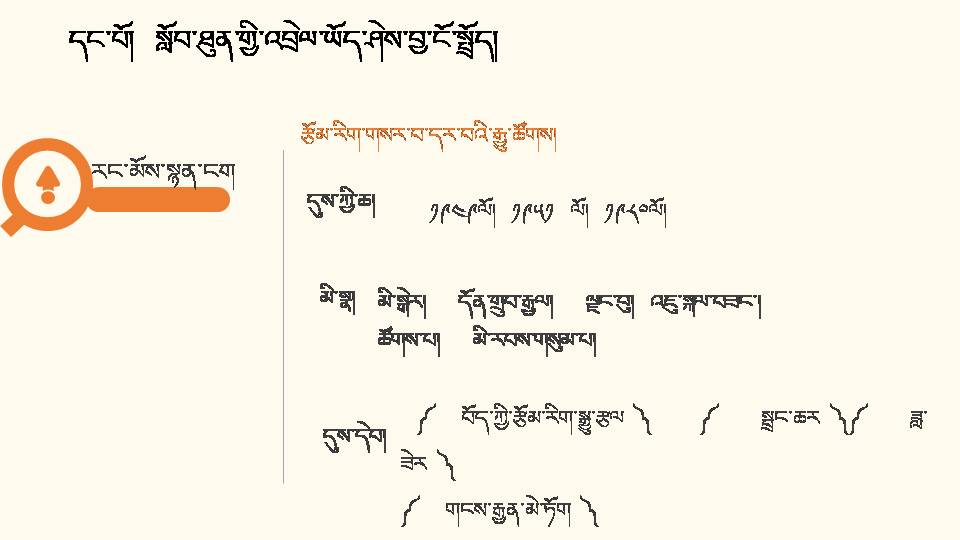 དང་པོ།  སློབ་ཐུན་གྱི་འབྲེལ་ཡོད་ཤེས་བྱ་ངོ་སྤྲོད།
རང་མོས་སྙན་ངག
རྩོམ་རིག་གསར་བ་དར་བའི་རྒྱུ་ཚོགས།
དུས་ཀྱི་ཆ། ༡༩༤༩ལོ། ༡༩༥༡ ལོ། ༡༩༨༠ལོ།
མི་སྣ། མི་སྒེར། དོན་གྲུབ་རྒྱལ། ལྗང་བུ། འཇུ་སྐལ་བཟང་།
ཚོགས་པ། མི་རབས་གསུམ་པ།
དུས་དེབ། ༼ བོད་ཀྱི་རྩོམ་རིག་སྒྱུ་རྩལ ༽ ༼ སྦྲང་ཆར ༽༼ ཟླ་
ཟེར ༽
༼ གངས་རྒྱན་མེ་ཏོག ༽